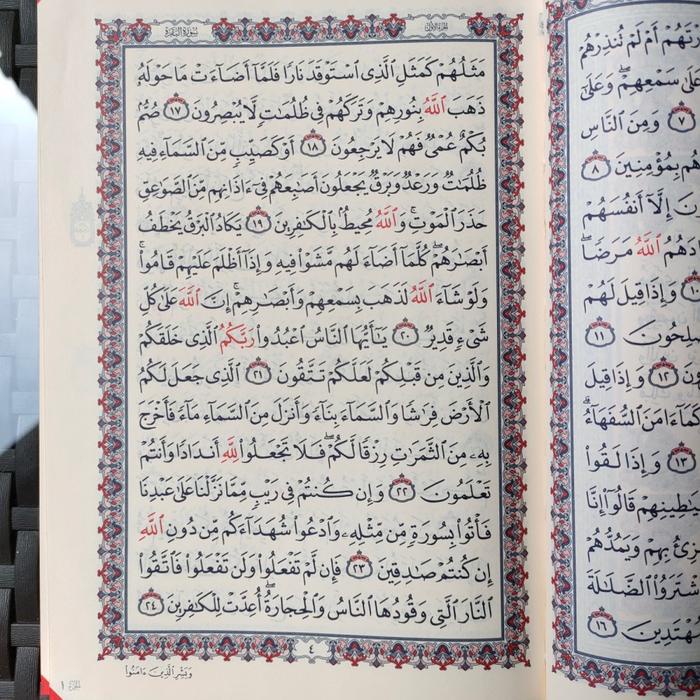 سُورَةُ البَقَرَةِ
الجُزْءُ الأَوَّلُ
مَثَلُهُمْ كَمَثَلِ ٱلَّذِى ٱسْتَوْقَدَ نَارًا فَلَمَّآ أَضَآءَتْ مَا حَوْلَهُۥ
ذَهَبَ ٱللَّهُ بِنُورِهِمْ وَتَرَكَهُمْ فِى ظُلُمَٰتٍ لَّا يُبْصِرُونَ ١٧ صُمٌّۢ
بُكْمٌ عُمْىٌ فَهُمْ لَا يَرْجِعُونَ ١٨ أَوْ كَصَيِّبٍ مِّنَ ٱلسَّمَآءِ فِيهِ
ظُلُمَٰتٌ وَرَعْدٌ وَبَرْقٌ يَجْعَلُونَ أَصَٰبِعَهُمْ فِىٓ ءَاذَانِهِم مِّنَ ٱلصَّوَٰعِقِ
حَذَرَ ٱلْمَوْتِ ۚ وَٱللَّهُ مُحِيطٌۢ بِٱلْكَٰفِرِينَ ١٩ يَكَادُ ٱلْبَرْقُ يَخْطَفُ
أَبْصَٰرَهُمْ ۖ كُلَّمَآ أَضَآءَ لَهُم مَّشَوْا۟ فِيهِ وَإِذَآ أَظْلَمَ عَلَيْهِمْ قَامُوا۟ ۚ
وَلَوْ شَآءَ ٱللَّهُ لَذَهَبَ بِسَمْعِهِمْ وَأَبْصَٰرِهِمْ ۚ إِنَّ ٱللَّهَ عَلَىٰ كُلِّ
شَىْءٍ قَدِيرٌ ٢٠ يَٰٓأَيُّهَا ٱلنَّاسُ ٱعْبُدُوا۟ رَبَّكُمُ ٱلَّذِى خَلَقَكُمْ
وَٱلَّذِينَ مِن قَبْلِكُمْ لَعَلَّكُمْ تَتَّقُونَ ٢١ ٱلَّذِى جَعَلَ لَكُمُ
ٱلْأَرْضَ فِرَٰشًا وَٱلسَّمَآءَ بِنَآءً وَأَنزَلَ مِنَ ٱلسَّمَآءِ مَآءً فَأَخْرَجَ
بِهِۦ مِنَ ٱلثَّمَرَٰتِ رِزْقًا لَّكُمْ ۖ فَلَا تَجْعَلُوا۟ لِلَّهِ أَندَادًا وَأَنتُمْ
تَعْلَمُونَ ٢٢ وَإِن كُنتُمْ فِى رَيْبٍ مِّمَّا نَزَّلْنَا عَلَىٰ عَبْدِنَا
فَأْتُوا۟ بِسُورَةٍ مِّن مِّثْلِهِۦ وَٱدْعُوا۟ شُهَدَآءَكُم مِّن دُونِ ٱللَّهِ
إِن كُنتُمْ صَٰدِقِينَ ٢٣ فَإِن لَّمْ تَفْعَلُوا۟ وَلَن تَفْعَلُوا۟ فَٱتَّقُوا۟
ٱلنَّارَ ٱلَّتِى وَقُودُهَا ٱلنَّاسُ وَٱلْحِجَارَةُ ۖ أُعِدَّتْ لِلْكَٰفِرِينَ ٢٤
٤
وَبَشِّرِ ٱلَّذِينَ ءَامَنُوا۟
أَمْ لَمْ تُنذِرْهُمْ
سَمْعِهِمْ ۖ وَعَلَىٰٓ
٧ وَمِنَ ٱلنَّاسِ
هُم بِمُؤْمِنِينَ ٨
إِلَّآ أَنفُسَهُمْ
ٱللَّهُ مَرَضًا ۖ
وَإِذَا قِيلَ لَهُمْ
١١
١٢ وَإِذَا قِيلَ
ءَامَنَ ٱلسُّفَهَآءُ ۗ
١٣ وَإِذَا لَقُوا۟
قَالُوٓا۟ إِنَّا
بِهِمْ وَيَمُدُّهُمْ
ٱلضَّلَٰلَةَ
١٦